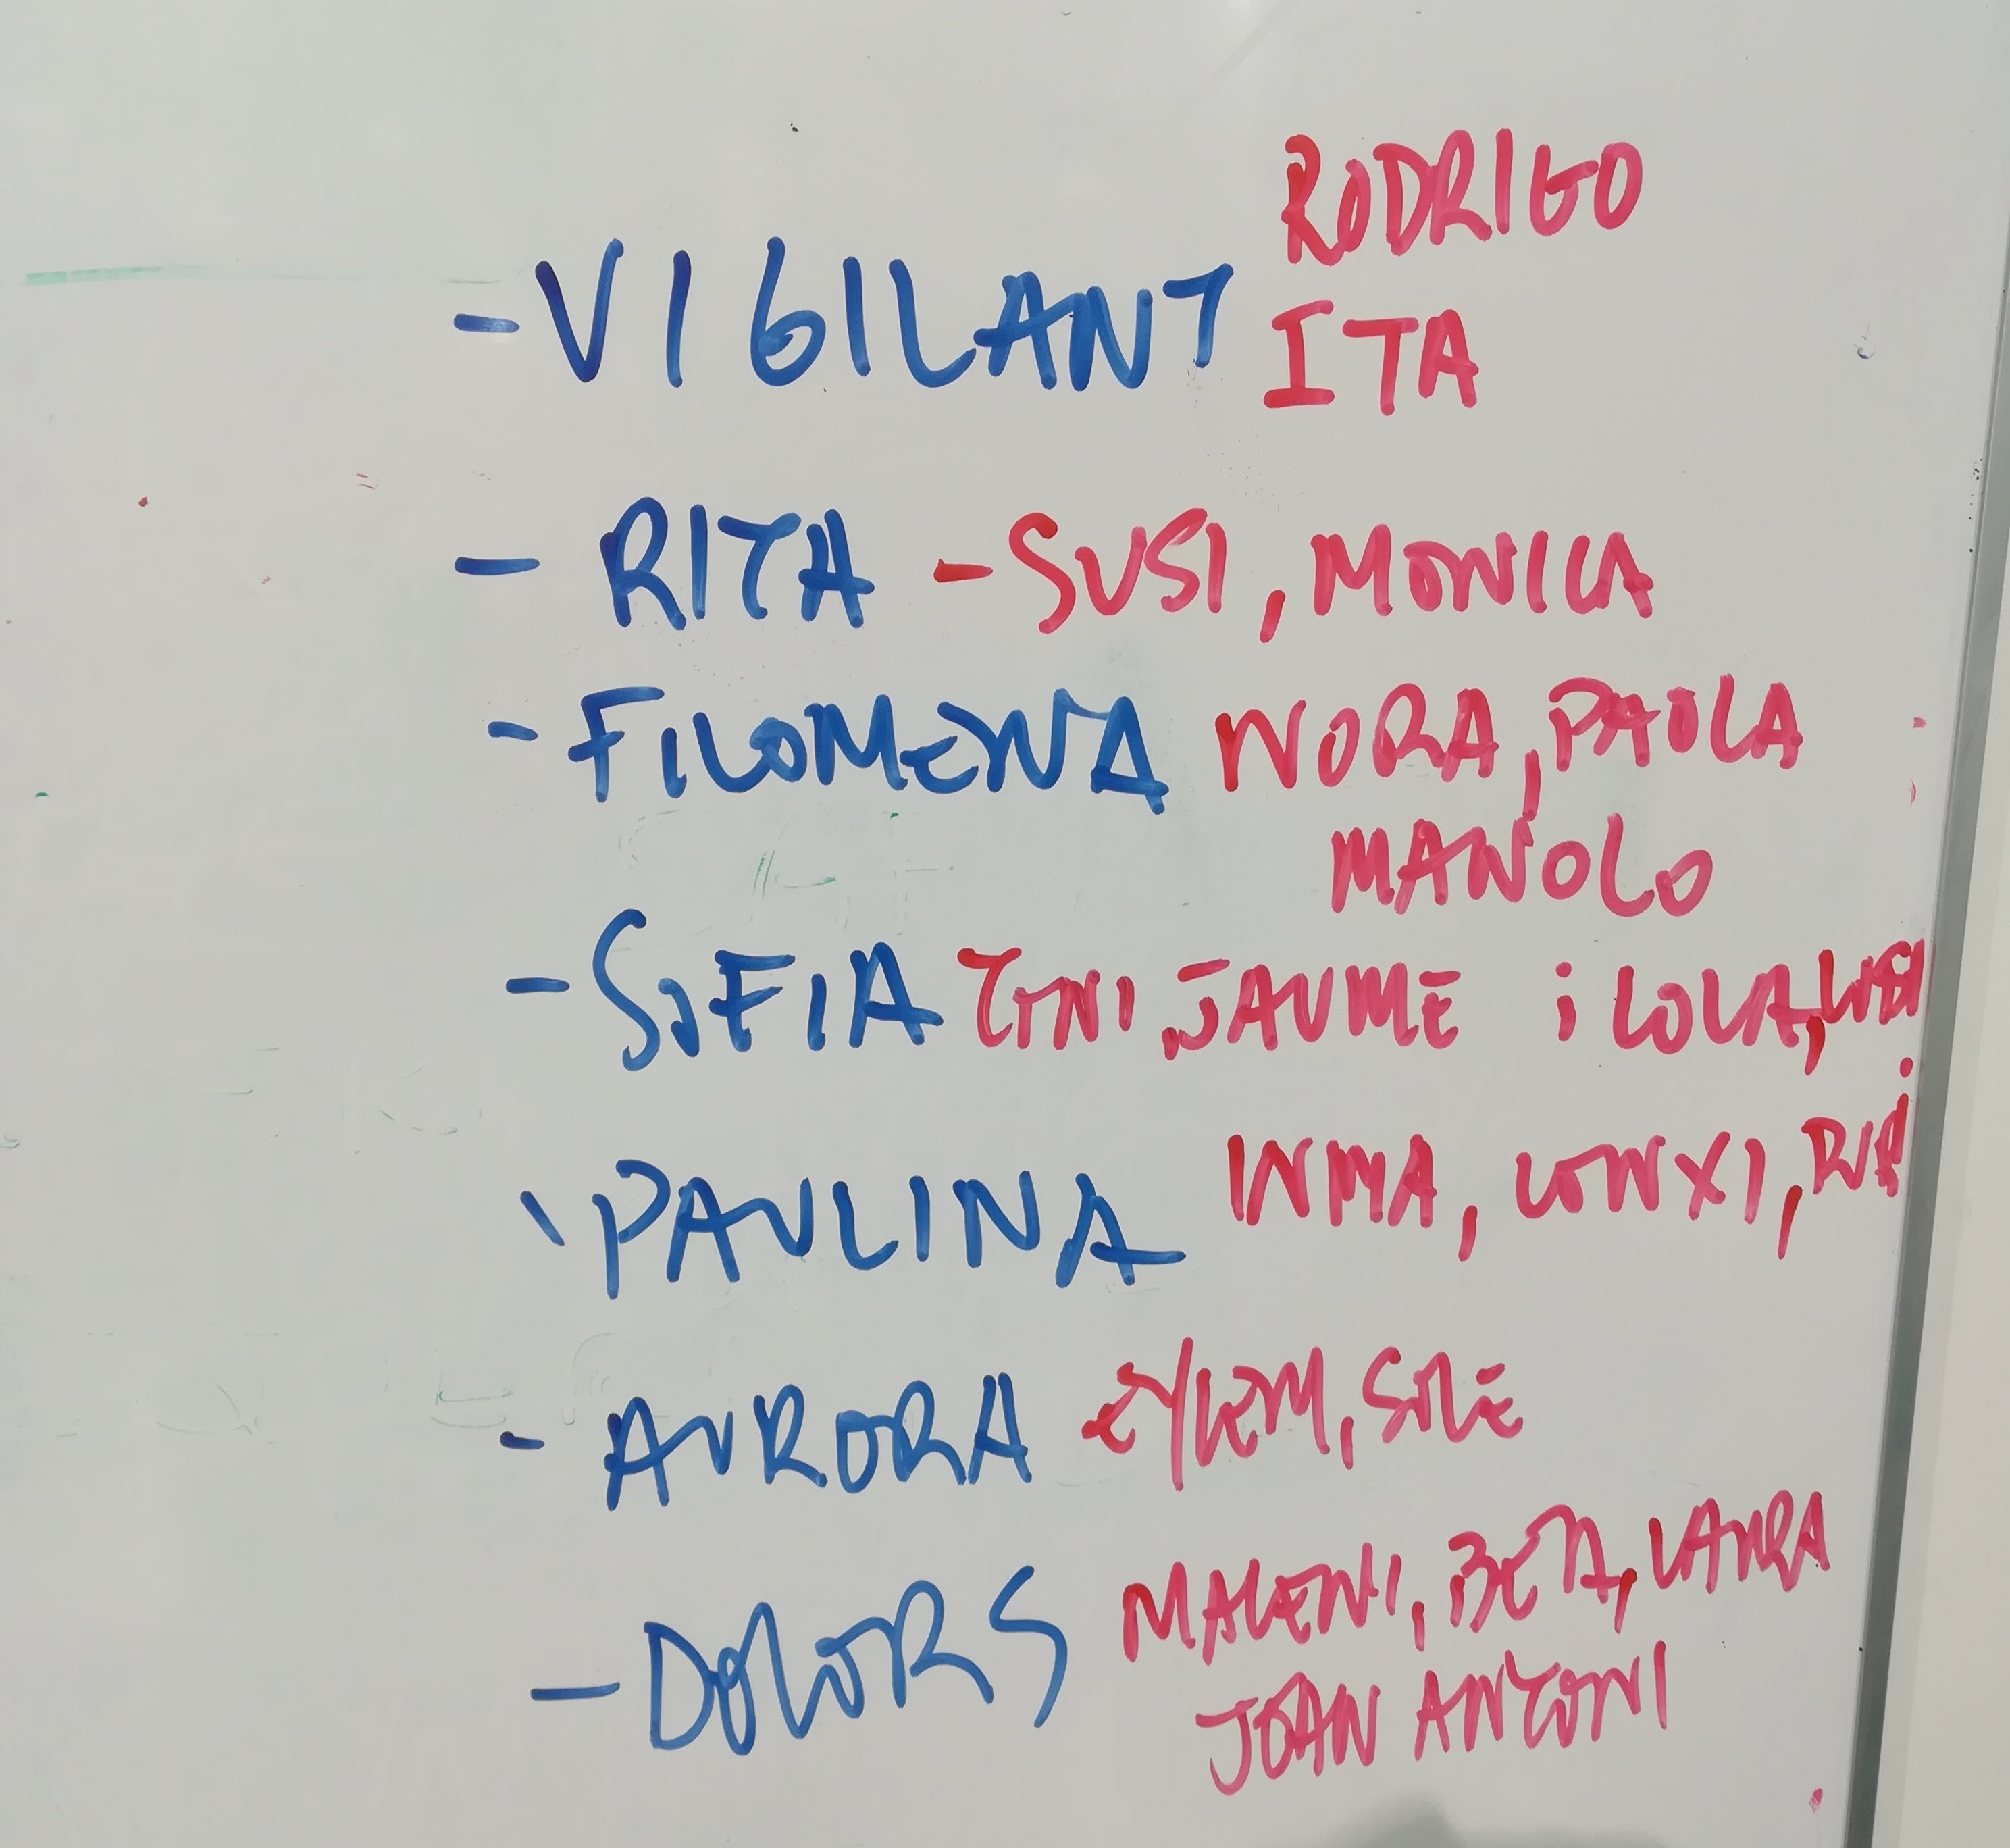 RODRIGO
- VIGILANT ITA
- RITA - SUSI, MONICA
- FILOMENA NORA, PAOLA
MANOLO
- SOFIA TONI, JAUME i LOLA,
- PAULINA INMA, CONXI,
- AURORA
- DOLORS MALENI, BETA, LAURA
JOAN ANTONI